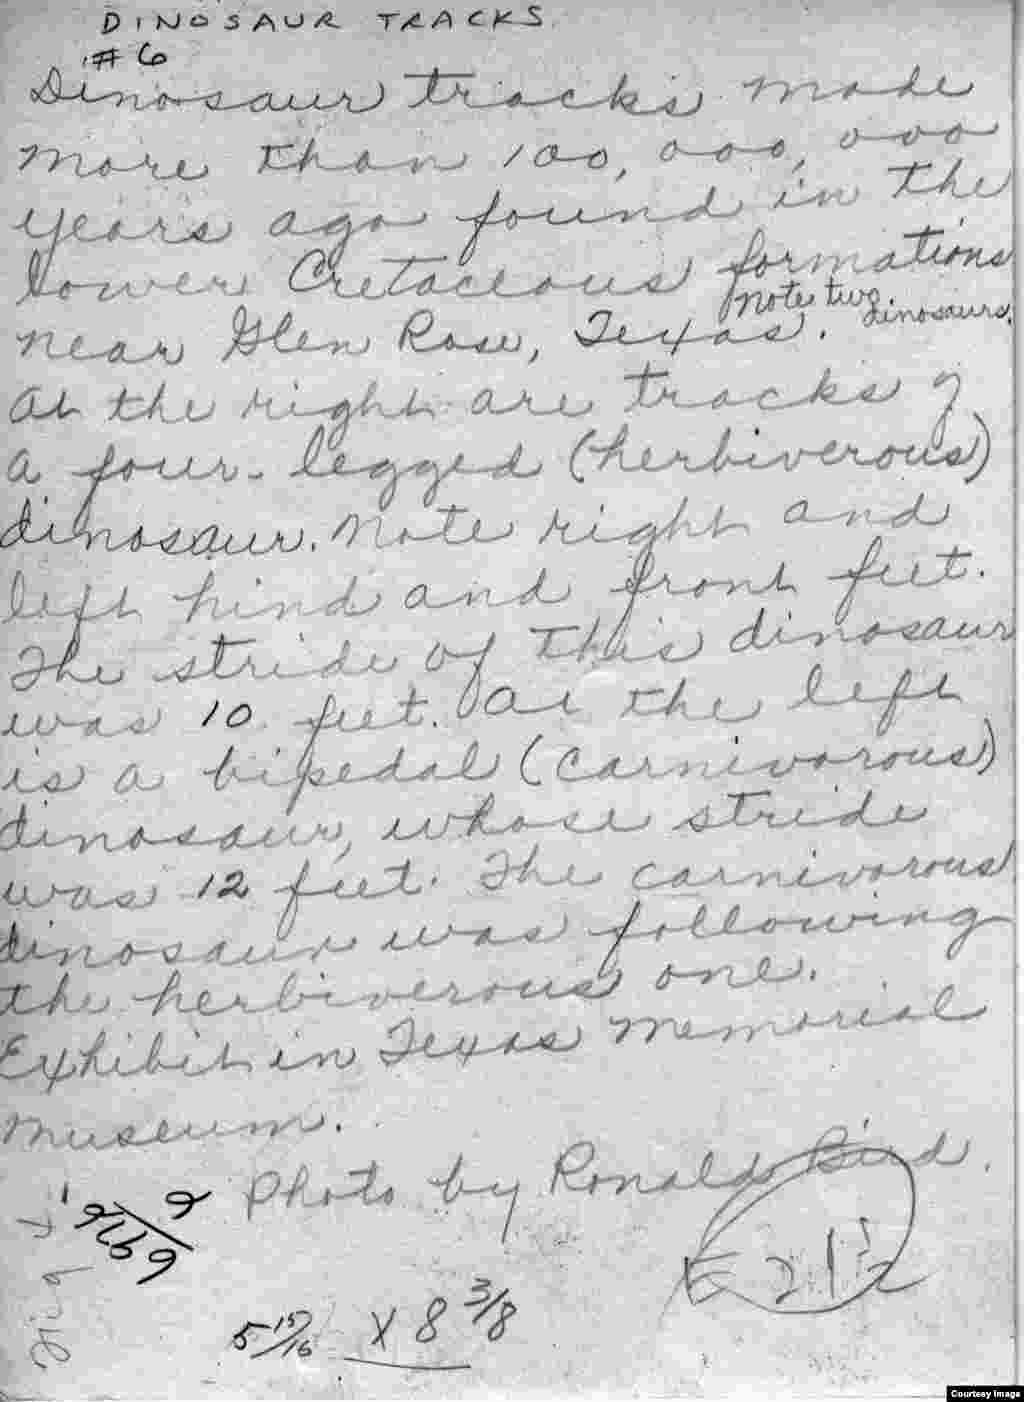 DINOSAUR TRACKS
#6
Dinosaur tracks made
more than 100,000,000
years ago found in the
lower Cretaceous formations
near Glen Rose, Texas. Note two dinosaurs.
At the right are tracks of
a four-legged (herbiverous)
dinosaur. Note right and
left hind and front feet.
The stride of this dinosaur
was 10 feet. At the left
is a bipedal (carnivorous)
dinosaur, whose stride
was 12 feet. The carnivorous
dinosaur was following
the herbiverous one.
Exhibit in Texas Memorial
Museum.
Photo by Ronald Bird.
21½
5 15/16 x 8 3/8
Courtesy Image